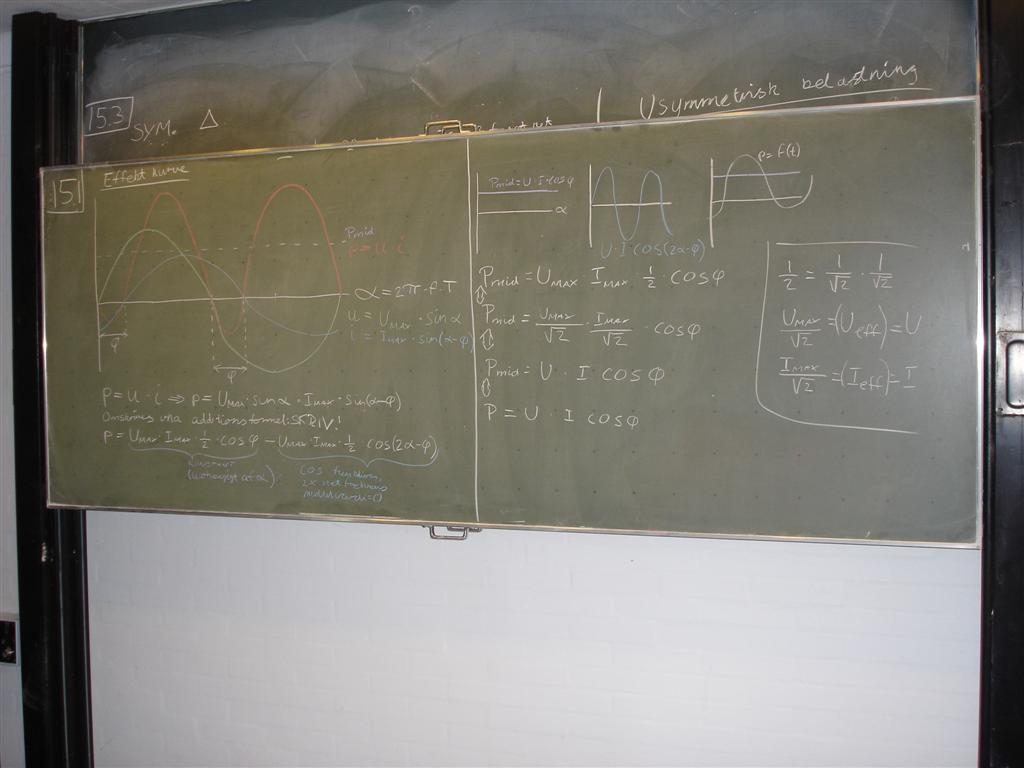 15.3
SYM. Δ
Usymmetrisk belastning
15.1
Effekt kurve
Pmid
p = u · i
α = 2π · f · T
u = UMAX · sin α
i = IMAX · sin(α-φ)
φ
φ
P = u · i ⇒ p = UMAX · sin α · IMAX · sin(α-φ)
Omskrives via additionsformel: SKRIV!
P = UMAX · IMAX · ½ · cos φ - UMAX · IMAX · ½ cos(2α-φ)
konstant
(uafhængigt af α)
cos funktion,
2x netfrekvens
middelværdi = 0
Pmid = U · I · cos φ
α
U · I · cos(2α-φ)
p = f(t)
Pmid = UMAX · IMAX · ½ · cos φ
⇕
Pmid = UMAX/√2 · IMAX/√2 · cos φ
⇕
Pmid = U · I cos φ
⇕
P = U · I cos φ
½ = 1/√2 · 1/√2
UMAX/√2 = (Ueff) = U
IMAX/√2 = (Ieff) = I